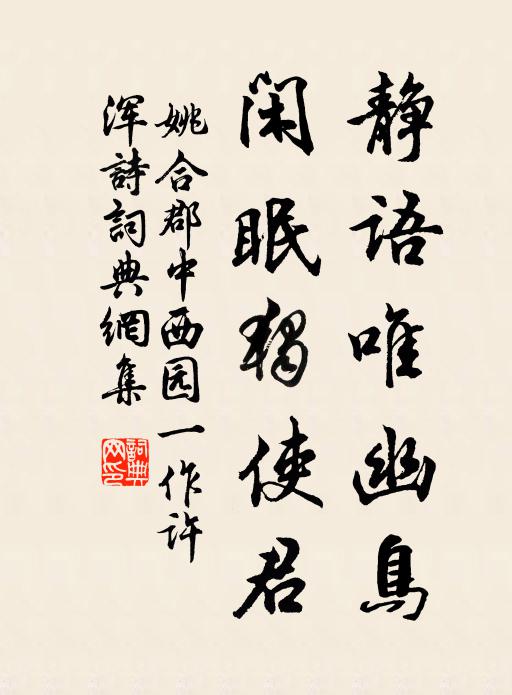 静语唯幽鳥
闲眠独使君
姚合郡中西园一作许
浑詩詞典網集
詞典网印